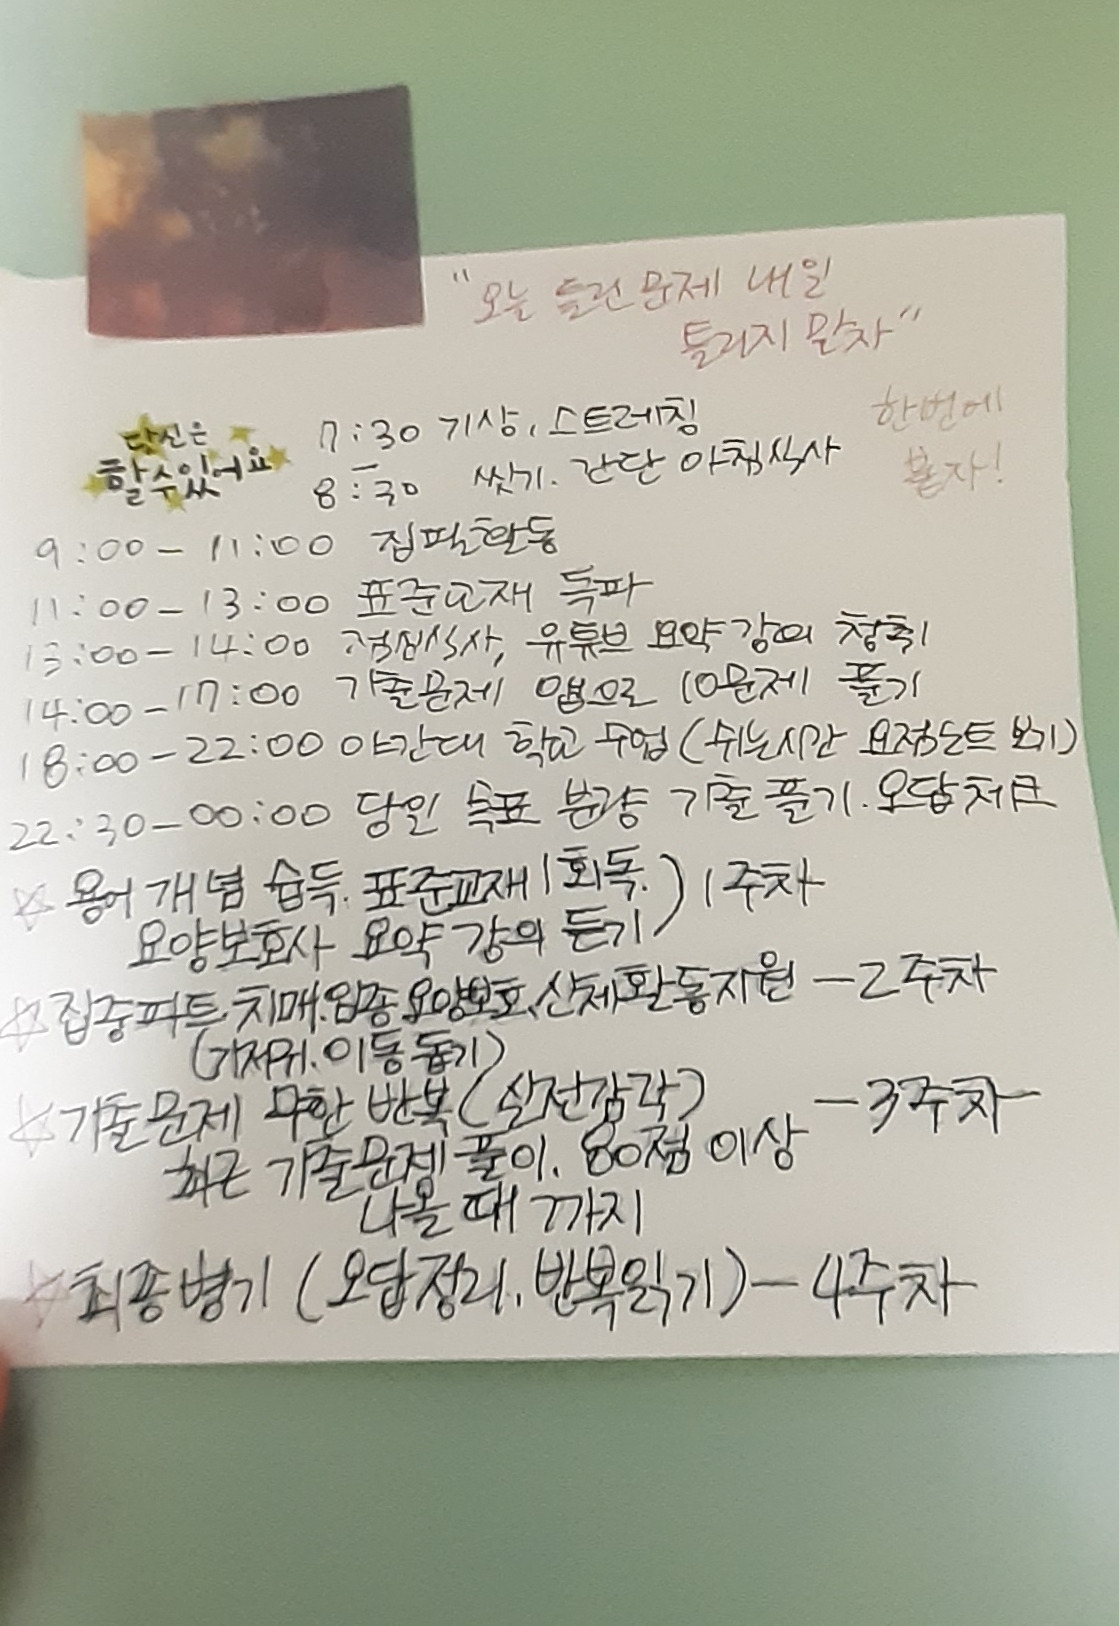 "오늘 틀린 문제 내일
틀리지 말자"
한번에
붙자!
당신은
할수있어요
7:30 기상, 스트레칭
8:30 씻기. 간단 아침식사
9:00 - 11:00 집필활동
11:00 - 13:00 표준교재 독파
13:00 - 14:00 점심식사, 유튜브 요약 강의 청취
14:00 - 17:00 기출문제 앱으로 10문제 풀기
18:00 - 22:00 야간대 학교 수업 (쉬는시간 요점노트 보기)
22:30 - 00:00 당일 목표 분량 기출 풀기. 오답체크
☆ 용어 개념 습득. 표준교재 1회독. ) 1주차
요양보호사 요약 강의 듣기
☆ 집중파트 치매.임종 요양보호, 신체활동지원 - 2주차
(기저귀. 이동 돕기)
☆ 기출문제 무한 반복 (실전감각) - 3주차
최근 기출문제 풀이. 80점 이상
나올 때 까지
☆ 최종병기 (오답정리. 반복읽기) - 4주차